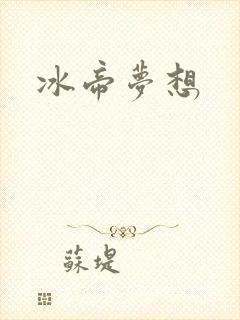 冰帝夢想
蘇堤